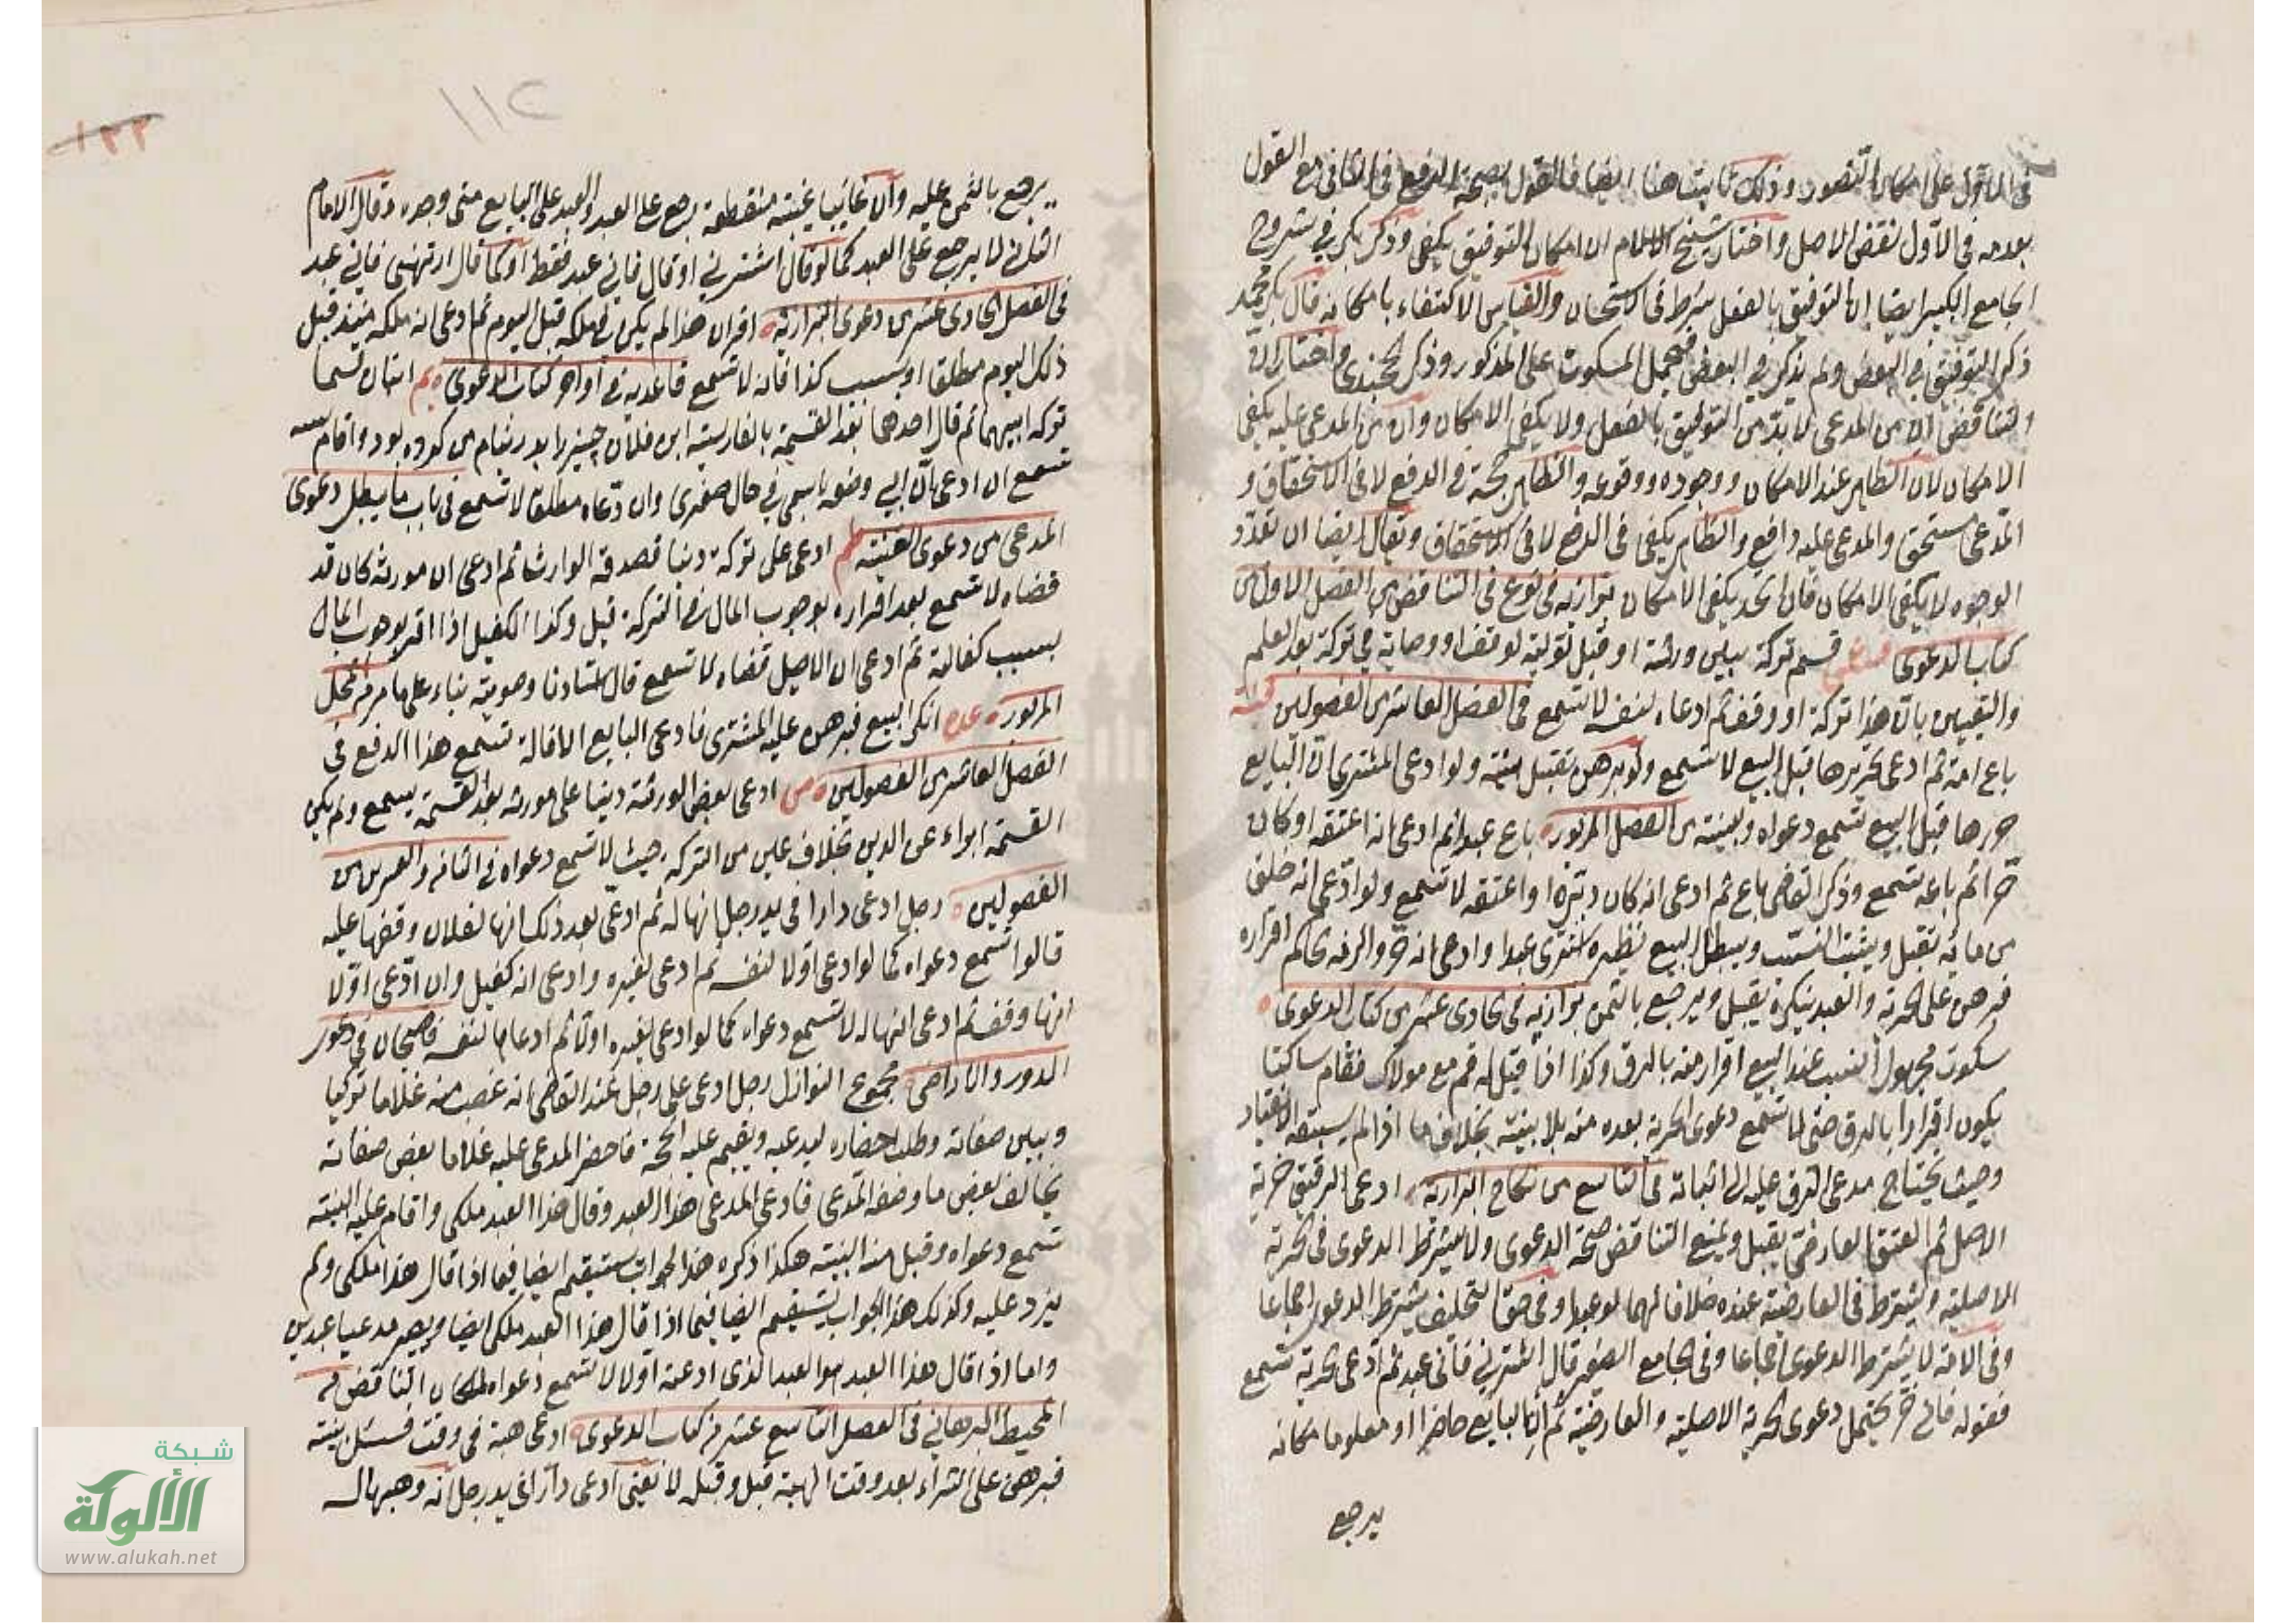 في الاول على امكان التصور وذلك ثابت هنا ايضا فالقول بصحة الدفع في الثاني مع القول
بعدمه في الاول نقض الاصل واختار شيخ الاسلام ان امكان التوفيق يكفي وذكر بكر في شروح
الجامع الكبير ايضا ان التوفيق بالفعل شرط في الاستحسان والقياس الاكتفاء بامكانه قال بكر محمد
ذكر التوفيق في البعض ولم يذكر في البعض فيحمل المسكوت على المذكور وذكر الخجندي واختار ان
التناقض ان من المدعي لا بد من التوفيق بالفعل ولا يكفي الامكان وان من المدعى عليه يكفي
الامكان لان الظاهر عند الامكان ووجوده ووقوعه والظاهر حجة في الدفع لا في الاستحقاق و
المدعي مستحق والمدعى عليه دافع والظاهر يكفي في الدفع لا في الاستحقاق ويقال ايضا ان تعدد
الوجوه لا يكفي الامكان فان اتحد يكفي الامكان بزازيه في نوع في التناقض من الفصل الاول من
كتاب الدعوى قسم تركة بين ورثة او قبل تولية لوقف او وصاية في تركة بعد العلم
واليقين بان هذا تركة او وقف ثم ادعاه لنفسه لا تسمع في الفصل العاشر من الفصولين
باع امة ثم ادعى تحريرها قبل البيع لا تسمع ولو برهن تقبل بينته ولو ادعى المشتري ان البايع
حررها قبل البيع تسمع دعواه وبينته من الفصل المزبور باع عبدا ثم ادعى انه اعتقه او كان
حرا ثم باعه تسمع وذكر القاضي باع ثم ادعى انه كان دبره او اعتقه لا تسمع ولو ادعى انه خلق
من مائه تقبل ويثبت النسب ويبطل البيع نظيره اشترى عبدا وادعى انه حر والزمه حاكم اقراره
فبرهن على الحرية والعبد ينكره يقبل ويرجع بالثمن بزازيه في حادى عشر من كتاب الدعوى
سكوت مجهول النسب عند البيع اقرار منه بالرق وكذا اذا قيل له قم مع مولاك فقام ساكتا
يكون اقرارا بالرق حتى لا تسمع دعوى الحرية بعده منه بلا بينة بخلاف ما اذا لم يسبقه الانقياد
وحيث يحتاج مدعى الرق عليه الى اثباته في التاسع من نكاح البزازية ادعى الرقيق حرية
الاصل ثم العتق العارض يقبل ويمنع التناقض صحة الدعوى ولا يشترط الدعوى في الحرية
الاصلية ويشترط في العارضية عنده خلافا لهما لو عبدا وفي حق التحليف يشترط الدعوى اجماعا
وفي الامة لا يشترط الدعوى اجماعا وفي الجامع الصغير قال اشترني فاني عبد ثم ادعى الحرية تسمع
فقوله فاني حر يحتمل دعوى الحرية الاصلية والعارضية ثم ان البايع حاضرا او معلوما مكانه
يرجع
١١٢
١٢٢
يرجع بالثمن عليه وان غائبا غيبة منقطعة رجع على العبد والعبد على البايع متى وجده وقال الامام
الثاني لا يرجع على العبد كما لو قال اشترني او قال فاني عبد فقط او كما قال ارتهني فاني عبد
في الفصل الحادى عشر من دعوى البزازية اقر ان هذا لم يكن في ملكه قبل اليوم ثم ادعى انه ملكه منذ قبل
ذلك اليوم مطلقا او بسبب كذا فانه لا تسمع قاعديه في اواخر كتاب الدعوى اثنان قسما
تركة ابيهما ثم قال احدهما بعد القسمة بالفارسية اين فلان چيز را پدر بنام من كرده بود واقام
تسمع ان ادعى بان ابي وضعه باسمي في حال صغرى وان ادعاه مطلقا لا تسمع في باب ما يبطل دعوى
المدعي من دعوى القنية ادعى على تركة دينا فصدقه الوارث ثم ادعى ان مورثه كان قد
قضاه لا تسمع بعد اقراره بوجوب المال في التركة قيل وكذا الكفيل اذا اقر بوجوب المال
بسبب كفالة ثم ادعى ان الاصيل قضاه لا تسمع قال استادنا وصوبته بناء على ما مر من المحل
المزبور انكر البيع فبرهن عليه المشتري فادعى البايع الاقالة تسمع هذا الدفع في
الفصل العاشر من الفصولين ادعى بعض الورثة دينا على مورثه بعد القسمة يسمع ولم يكن
القسمة ابراء عن الدين بخلاف عين من التركة حيث لا تسمع دعواه في الثامن والعشرين من
الفصولين رجل ادعى دارا في يد رجل انها له ثم ادعى بعد ذلك انها لفلان وقفها عليه
قالوا تسمع دعواه كما لو ادعى اولا لنفسه ثم ادعى لغيره وادعى انه كفيل وان ادعى اولا
انها وقف ثم ادعى انها له لا تسمع دعواه كما لو ادعى لغيره اولا ثم ادعاها لنفسه قاضيخان في دعوى
الدور والاراضى مجموع النوازل رجل ادعى على رجل عند القاضي انه غصب منه غلاما تركيا
وبين صفاته وطلب احضاره ليدعيه ويقيم عليه الحجة فاحضر المدعى عليه غلاما بعض صفاته
يخالف بعض ما وصفه المدعي فادعى المدعي هذا العبد وقال هذا العبد ملكي واقام عليه البينة
تسمع دعواه وقبل منه البينة هكذا ذكره هذا الجواب يستقيم ايضا فيما اذا قال هذا ملكي ولم
يزد عليه وكذلك هذا الجواب يستقيم ايضا فيما اذا قال هذا العبد ملكي ايضا ويصير مدعيا عبدين
واما اذا قال هذا العبد هو العبد الذى ادعته اولا لا تسمع دعواه لمكان التناقض في
المحيط البرهاني في الفصل التاسع عشر من كتاب الدعوى ادعى هبة في وقت فسئل بينة
فبرهن على الشراء بعد وقت الهبة قبل وقبله لا يعني ادعى دارا في يد رجل انه وهبها له
شبكة
الألوكة
www.alukah.net